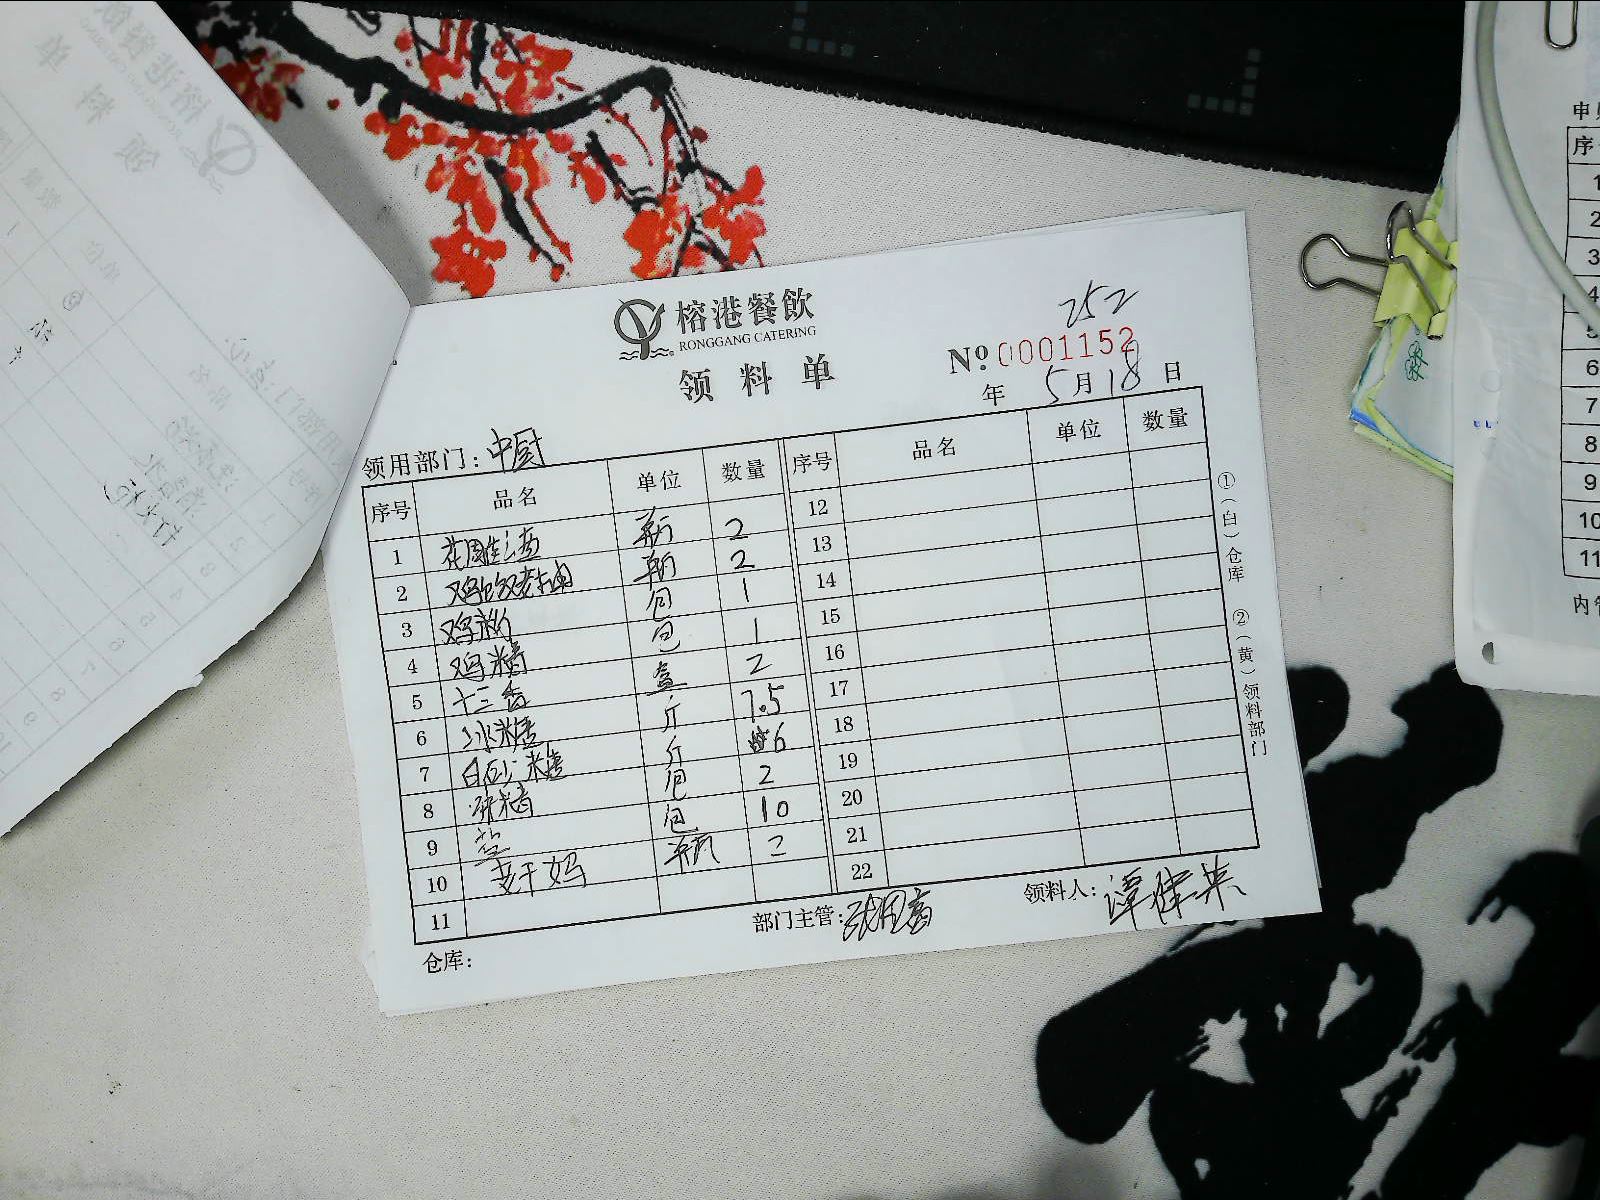 252
榕港餐飲
RONGGANG CATERING
领料单
Nº 0001152
年 5月18日
领用部门：中厨
序号 品名 单位 数量 序号 品名 单位 数量
1 花雕酒 瓶 2 12
2 老抽 瓶 2 13
3 鸡粉 包 1 14
4 鸡精 包 1 15
5 十三香 盒 2 16
6 冰糖 斤 7.5 17
7 白砂糖 斤 6 18
8 味精 包 2 19
9 盐 包 10 20
10 老干妈 瓶 2 21
11 22
仓库：
部门主管：
领料人：谭健英
①（白）仓库 ②（黄）领料部门
申
序
1
2
3
4
5
6
7
8
9
10
11
内